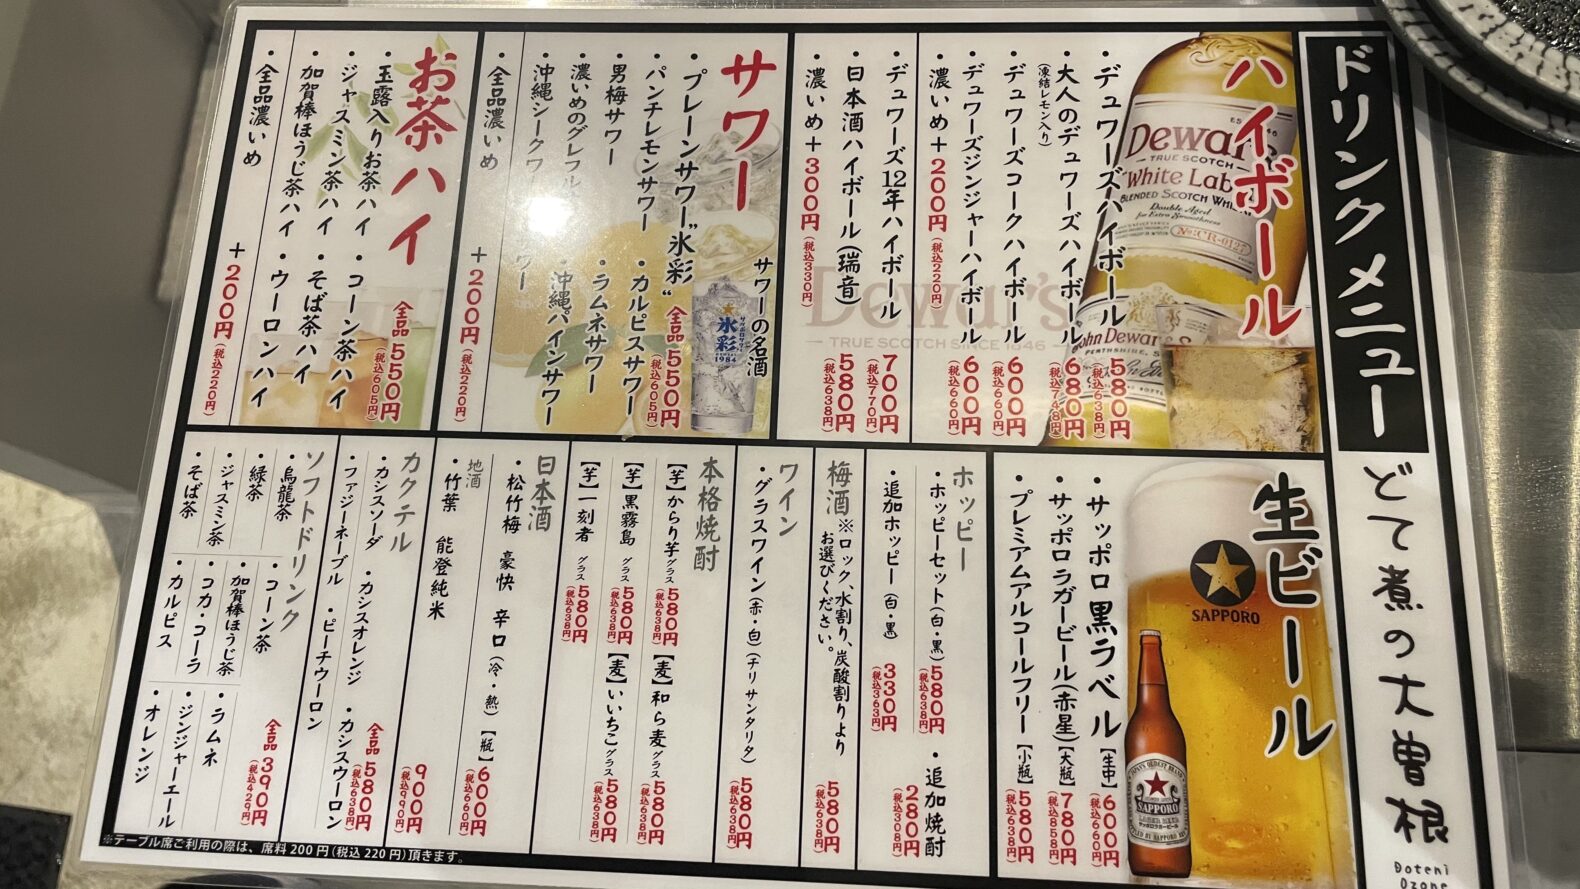 ドリンクメニュー
どて煮の大曽根
Doteni
Ozone
ハイボール
・デュワーズハイボール 580円(税込638円)
・大人のデュワーズハイボール 680円(税込748円)
(凍結レモン入り)
・デュワーズコークハイボール 600円(税込660円)
・デュワーズジンジャーハイボール 600円(税込660円)
・濃いめ+200円(税込220円)
・デュワーズ12年ハイボール 700円(税込770円)
・日本酒ハイボール(瑞音) 580円(税込638円)
・濃いめ+300円(税込330円)
Dewar's
TRUE SCOTCH
White Label
BLENDED SCOTCH WHISKY
Double Aged
for Extra Smoothness
No:CR-0127
John Dewar & S
PERTHSHIRE, S
Dewar's
TRUE SCOTCH SINCE 1846
サワー
サワーの名酒
氷彩
1984
・プレーンサワー"氷彩" 全品550円(税込605円)
・パンチレモンサワー ・カルピスサワー
・男梅サワー ・ラムネサワー
・濃いめのグレフルサワー ・沖縄パインサワー
・沖縄シークワーサワー
・全品濃いめ +200円(税込220円)
お茶ハイ
全品550円(税込605円)
・玉露入りお茶ハイ ・コーン茶ハイ
・ジャスミン茶ハイ ・そば茶ハイ
・加賀棒ほうじ茶ハイ ・ウーロンハイ
・全品濃いめ +200円(税込220円)
生ビール
SAPPORO
SAPPORO
LAGER BEER
・サッポロ黒ラベル【生中】600円(税込660円)
・サッポロラガービール(赤星)【大瓶】780円(税込858円)
・プレミアムアルコールフリー【小瓶】580円(税込638円)
ホッピー
・ホッピーセット(白・黒) 580円(税込638円) ・追加焼酎 280円(税込308円)
・追加ホッピー(白・黒) 330円(税込363円)
梅酒 ※ロック、水割り、炭酸割りより
お選びください。 580円(税込638円)
ワイン
・グラスワイン(赤・白)(チリ サンタリタ) 580円(税込638円)
本格焼酎
【芋】からり芋 グラス580円(税込638円) 【麦】和ら麦 グラス580円(税込638円)
【芋】黒霧島 グラス580円(税込638円) 【麦】いいちこ グラス580円(税込638円)
【芋】一刻者 グラス580円(税込638円)
日本酒
・松竹梅 豪快 辛口(冷・熱)【瓶】600円(税込660円)
地酒
・竹葉 能登純米 900円(税込990円)
カクテル 全品580円(税込638円)
・カシスソーダ ・カシスオレンジ ・カシスウーロン
・ファジーネーブル ・ピーチウーロン
ソフトドリンク 全品390円(税込429円)
・烏龍茶 ・コーン茶 ・ラムネ
・緑茶 ・加賀棒ほうじ茶 ・ジンジャーエール
・ジャスミン茶 ・コカ・コーラ ・オレンジ
・そば茶 ・カルピス
※テーブル席ご利用の際は、席料200円(税込220円)頂きます。